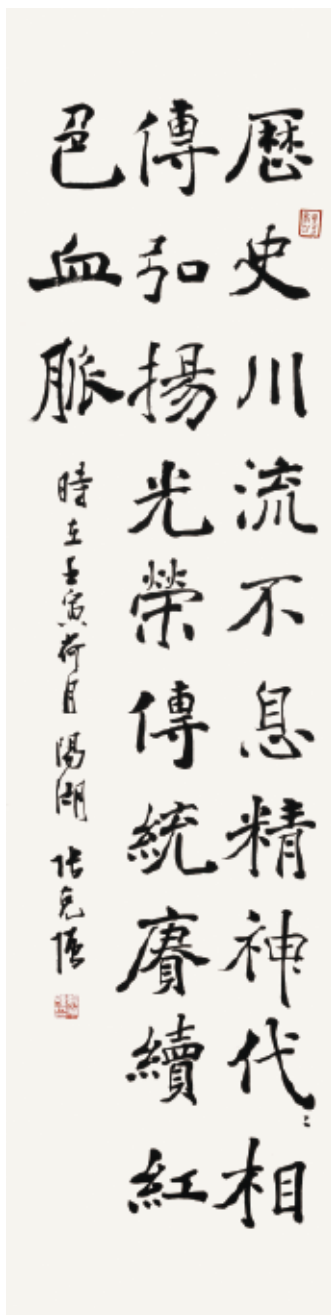 歷史川流不息精神代〻相
傳弘揚光榮傳統賡續紅
色血脈
時在壬寅荷月陽湖 張克